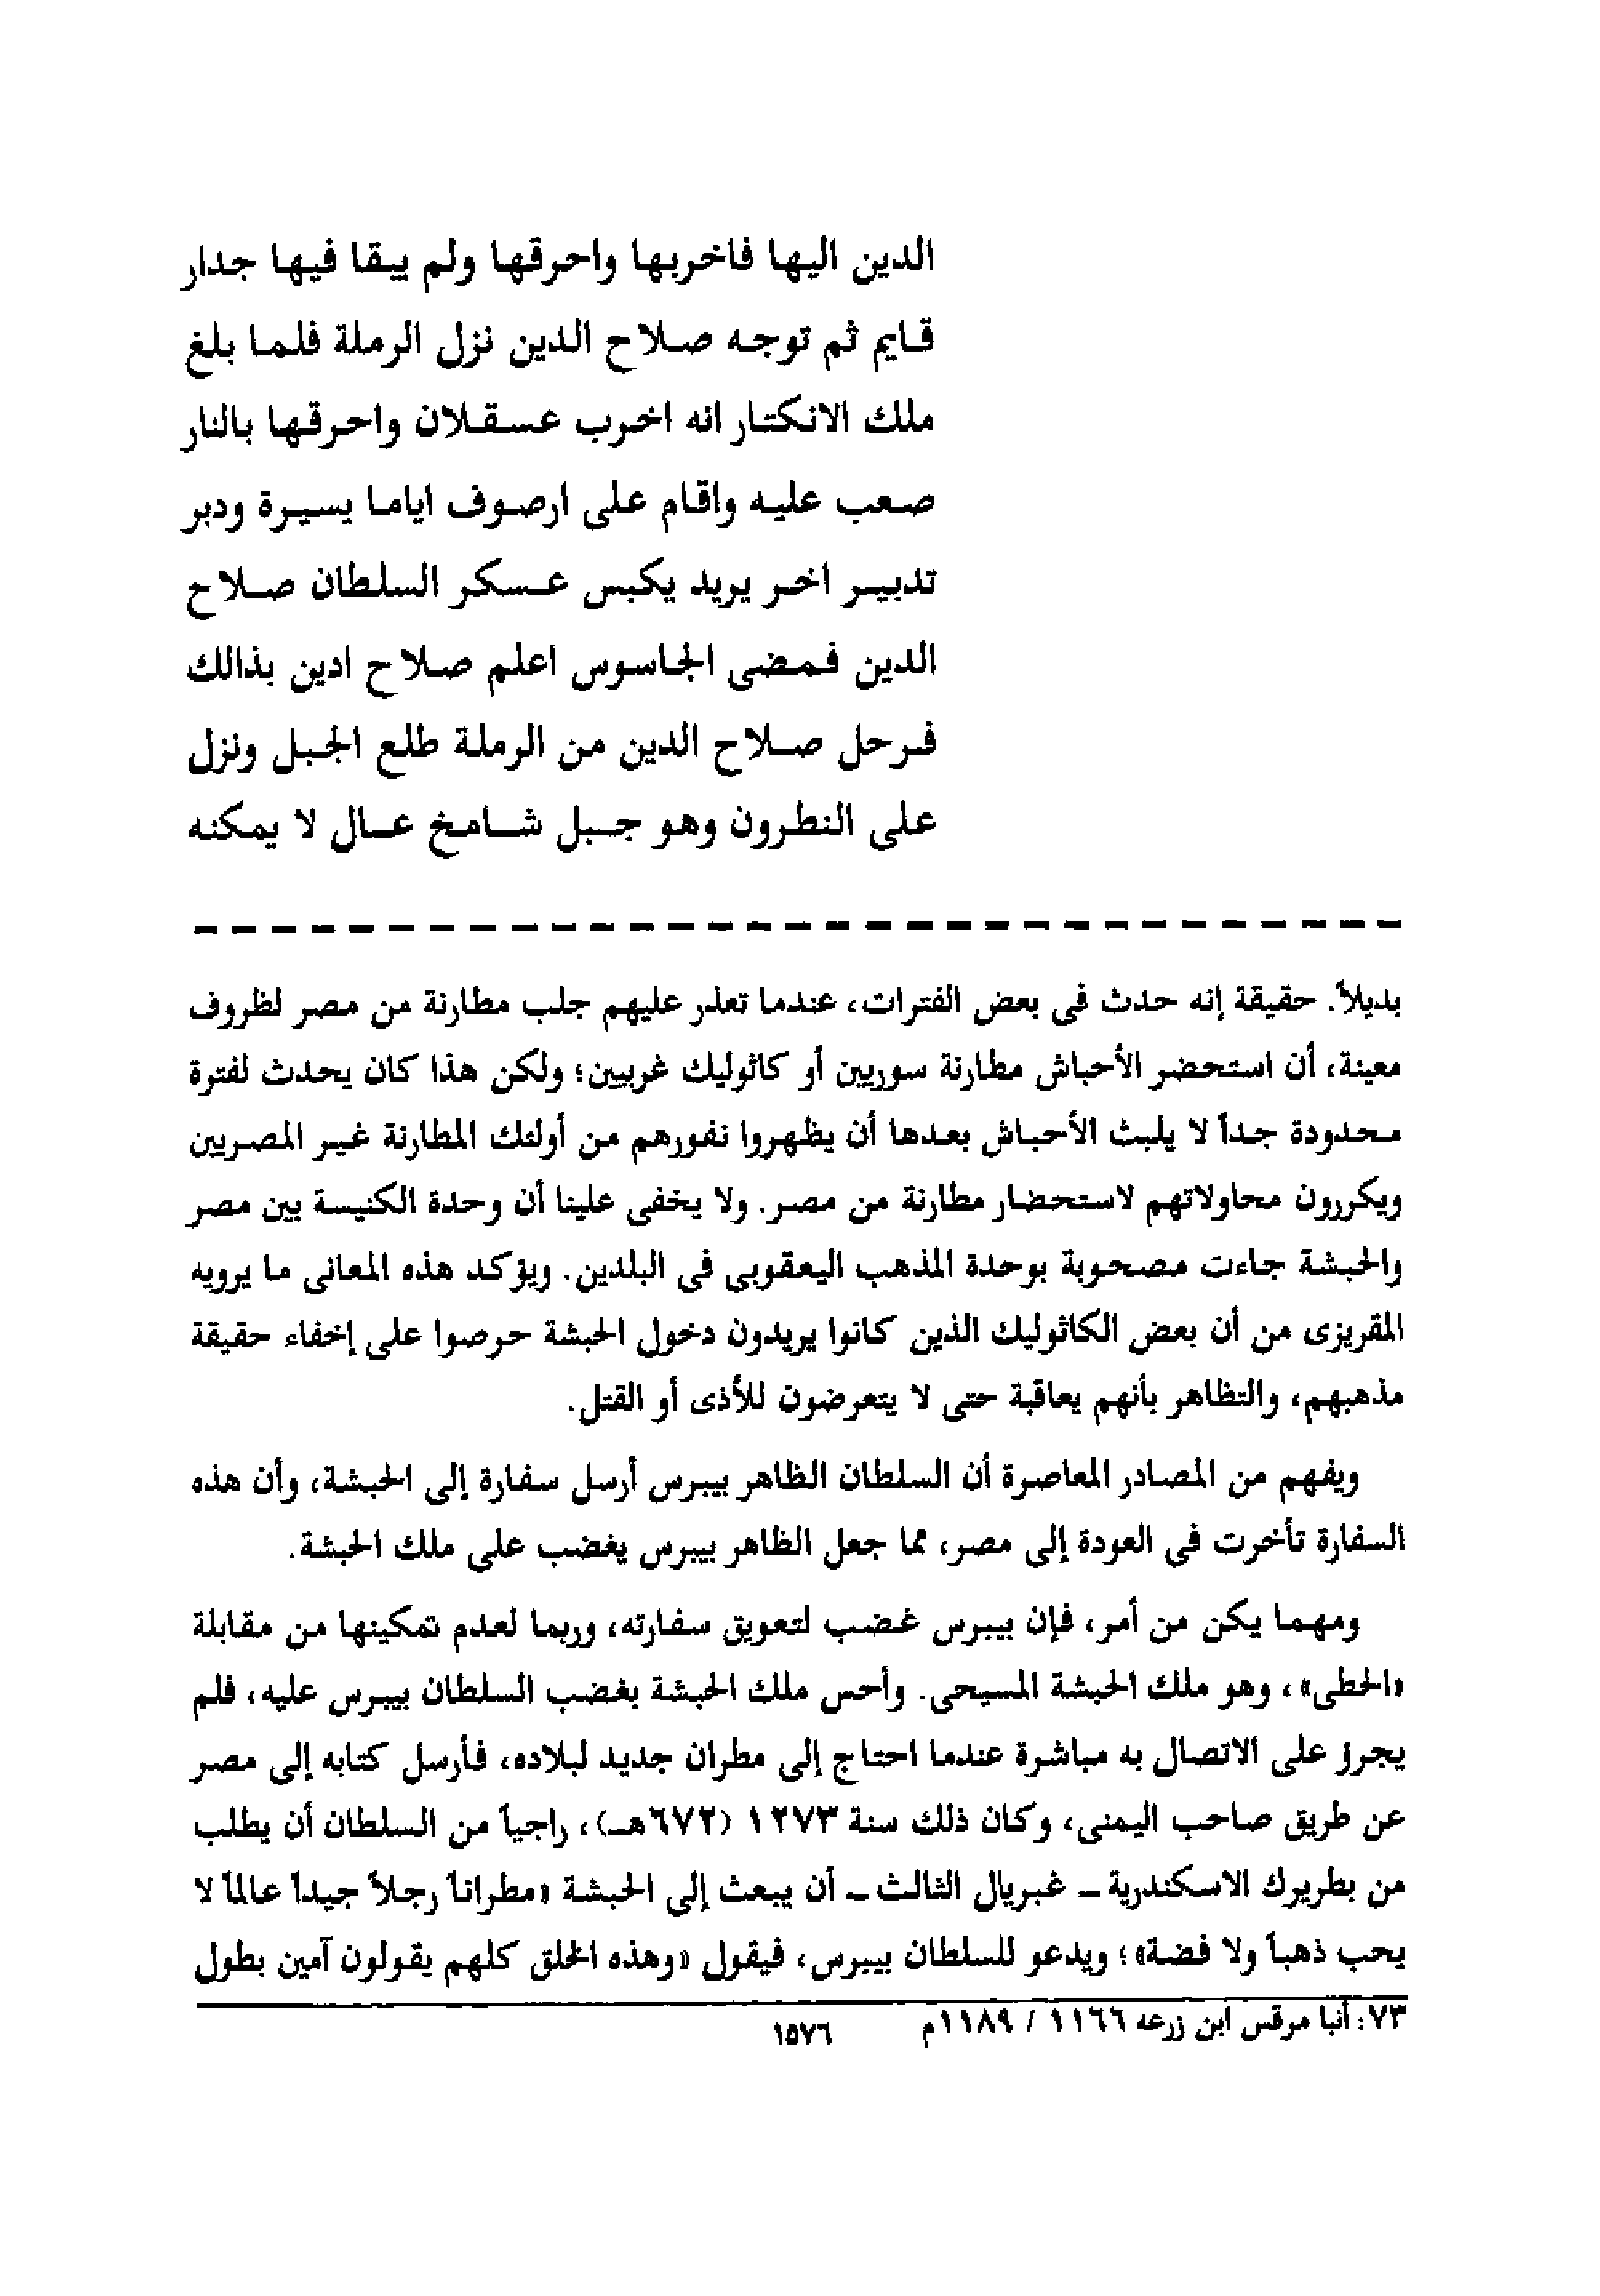 الدين اليها فاخربها واحرقها ولم يبقا فيها جدار
قايم ثم توجه صلاح الدين نزل الرملة فلما بلغ
ملك الانكتار انه اخرب عسقلان واحرقها بالنار
صعب عليه واقام على ارصوف اياما يسيرة ودبر
تدبير اخر يريد يكبس عسكر السلطان صلاح
الدين فمضى الجاسوس اعلم صلاح ادين بذالك
فرحل صلاح الدين من الرملة طلع الجبل ونزل
على النطرون وهو جبل شامخ عال لا يمكنه
بديلاً. حقيقة إنه حدث فى بعض الفترات، عندما تعذر عليهم جلب مطارنة من مصر لظروف
معينة، أن استحضر الأحباش مطارنة سوريين أو كاثوليك غربيين؛ ولكن هذا كان يحدث لفترة
محدودة جداً لا يلبث الأحباش بعدها أن يظهروا نفورهم من أولئك المطارنة غير المصريين
ويكررون محاولاتهم لاستحضار مطارنة من مصر. ولا يخفى علينا أن وحدة الكنيسة بين مصر
والحبشة جاءت مصحوبة بوحدة المذهب اليعقوبى فى البلدين. ويؤكد هذه المعانى ما يرويه
المقريزى من أن بعض الكاثوليك الذين كانوا يريدون دخول الحبشة حرصوا على إخفاء حقيقة
مذهبهم، والتظاهر بأنهم يعاقبة حتى لا يتعرضون للأذى أو القتل.
ويفهم من المصادر المعاصرة أن السلطان الظاهر بيبرس أرسل سفارة إلى الحبشة، وأن هذه
السفارة تأخرت فى العودة إلى مصر، مما جعل الظاهر بيبرس يغضب على ملك الحبشة.
ومهما يكن من أمر، فإن بيبرس غضب لتعويق سفارته، وربما لعدم تمكينها من مقابلة
«الحطى»، وهو ملك الحبشة المسيحى. وأحس ملك الحبشة بغضب السلطان بيبرس عليه، فلم
يجرؤ على الاتصال به مباشرة عندما احتاج إلى مطران جديد لبلاده، فأرسل كتابه إلى مصر
عن طريق صاحب اليمنى، وكان ذلك سنة ١٢٧٣ (٦٧٢هـ)، راجياً من السلطان أن يطلب
من بطريرك الاسكندرية ـ غبريال الثالث ـ أن يبعث إلى الحبشة «مطراناً رجلاً جيداً عالماً لا
يحب ذهباً ولا فضة»؛ ويدعو للسلطان بيبرس، فيقول «وهذه الخلق كلهم يقولون آمين بطول
٧٣: أنبا مرقس ابن زرعه ١١٦٦ / ١١٨٩م ١٥٧٦